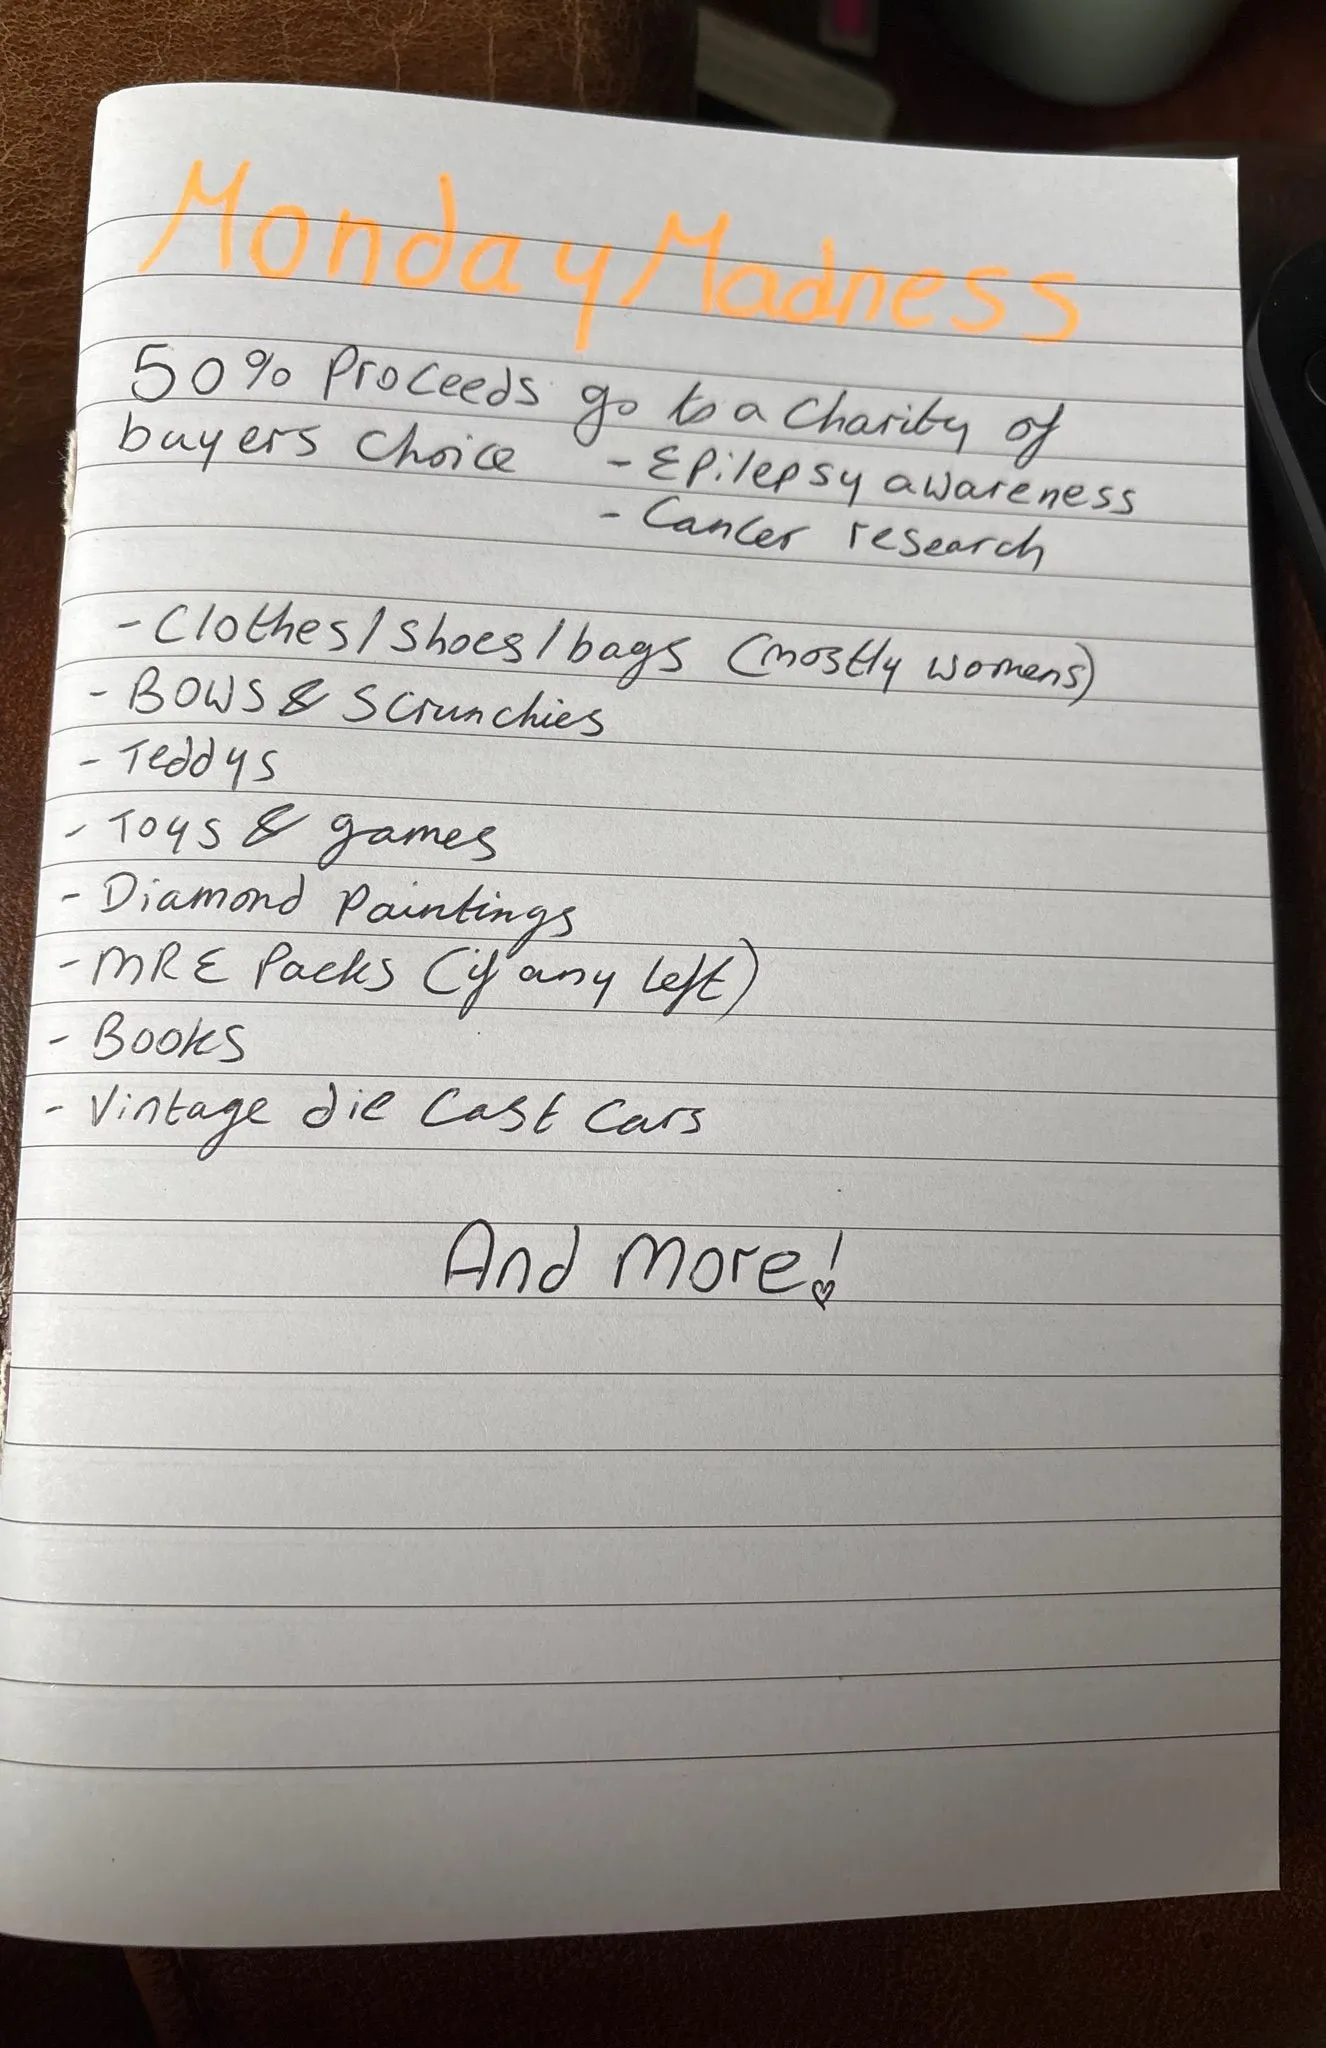 Monday Madness
50% Proceeds go to a Charity of
buyers choice - Epilepsy awareness
- Cancer research
- Clothes/shoes/bags (mostly womens)
- Bows & Scrunchies
- Teddys
- Toys & games
- Diamond Paintings
- MRE Packs (if any left)
- Books
- Vintage die Cast Cars
And More!